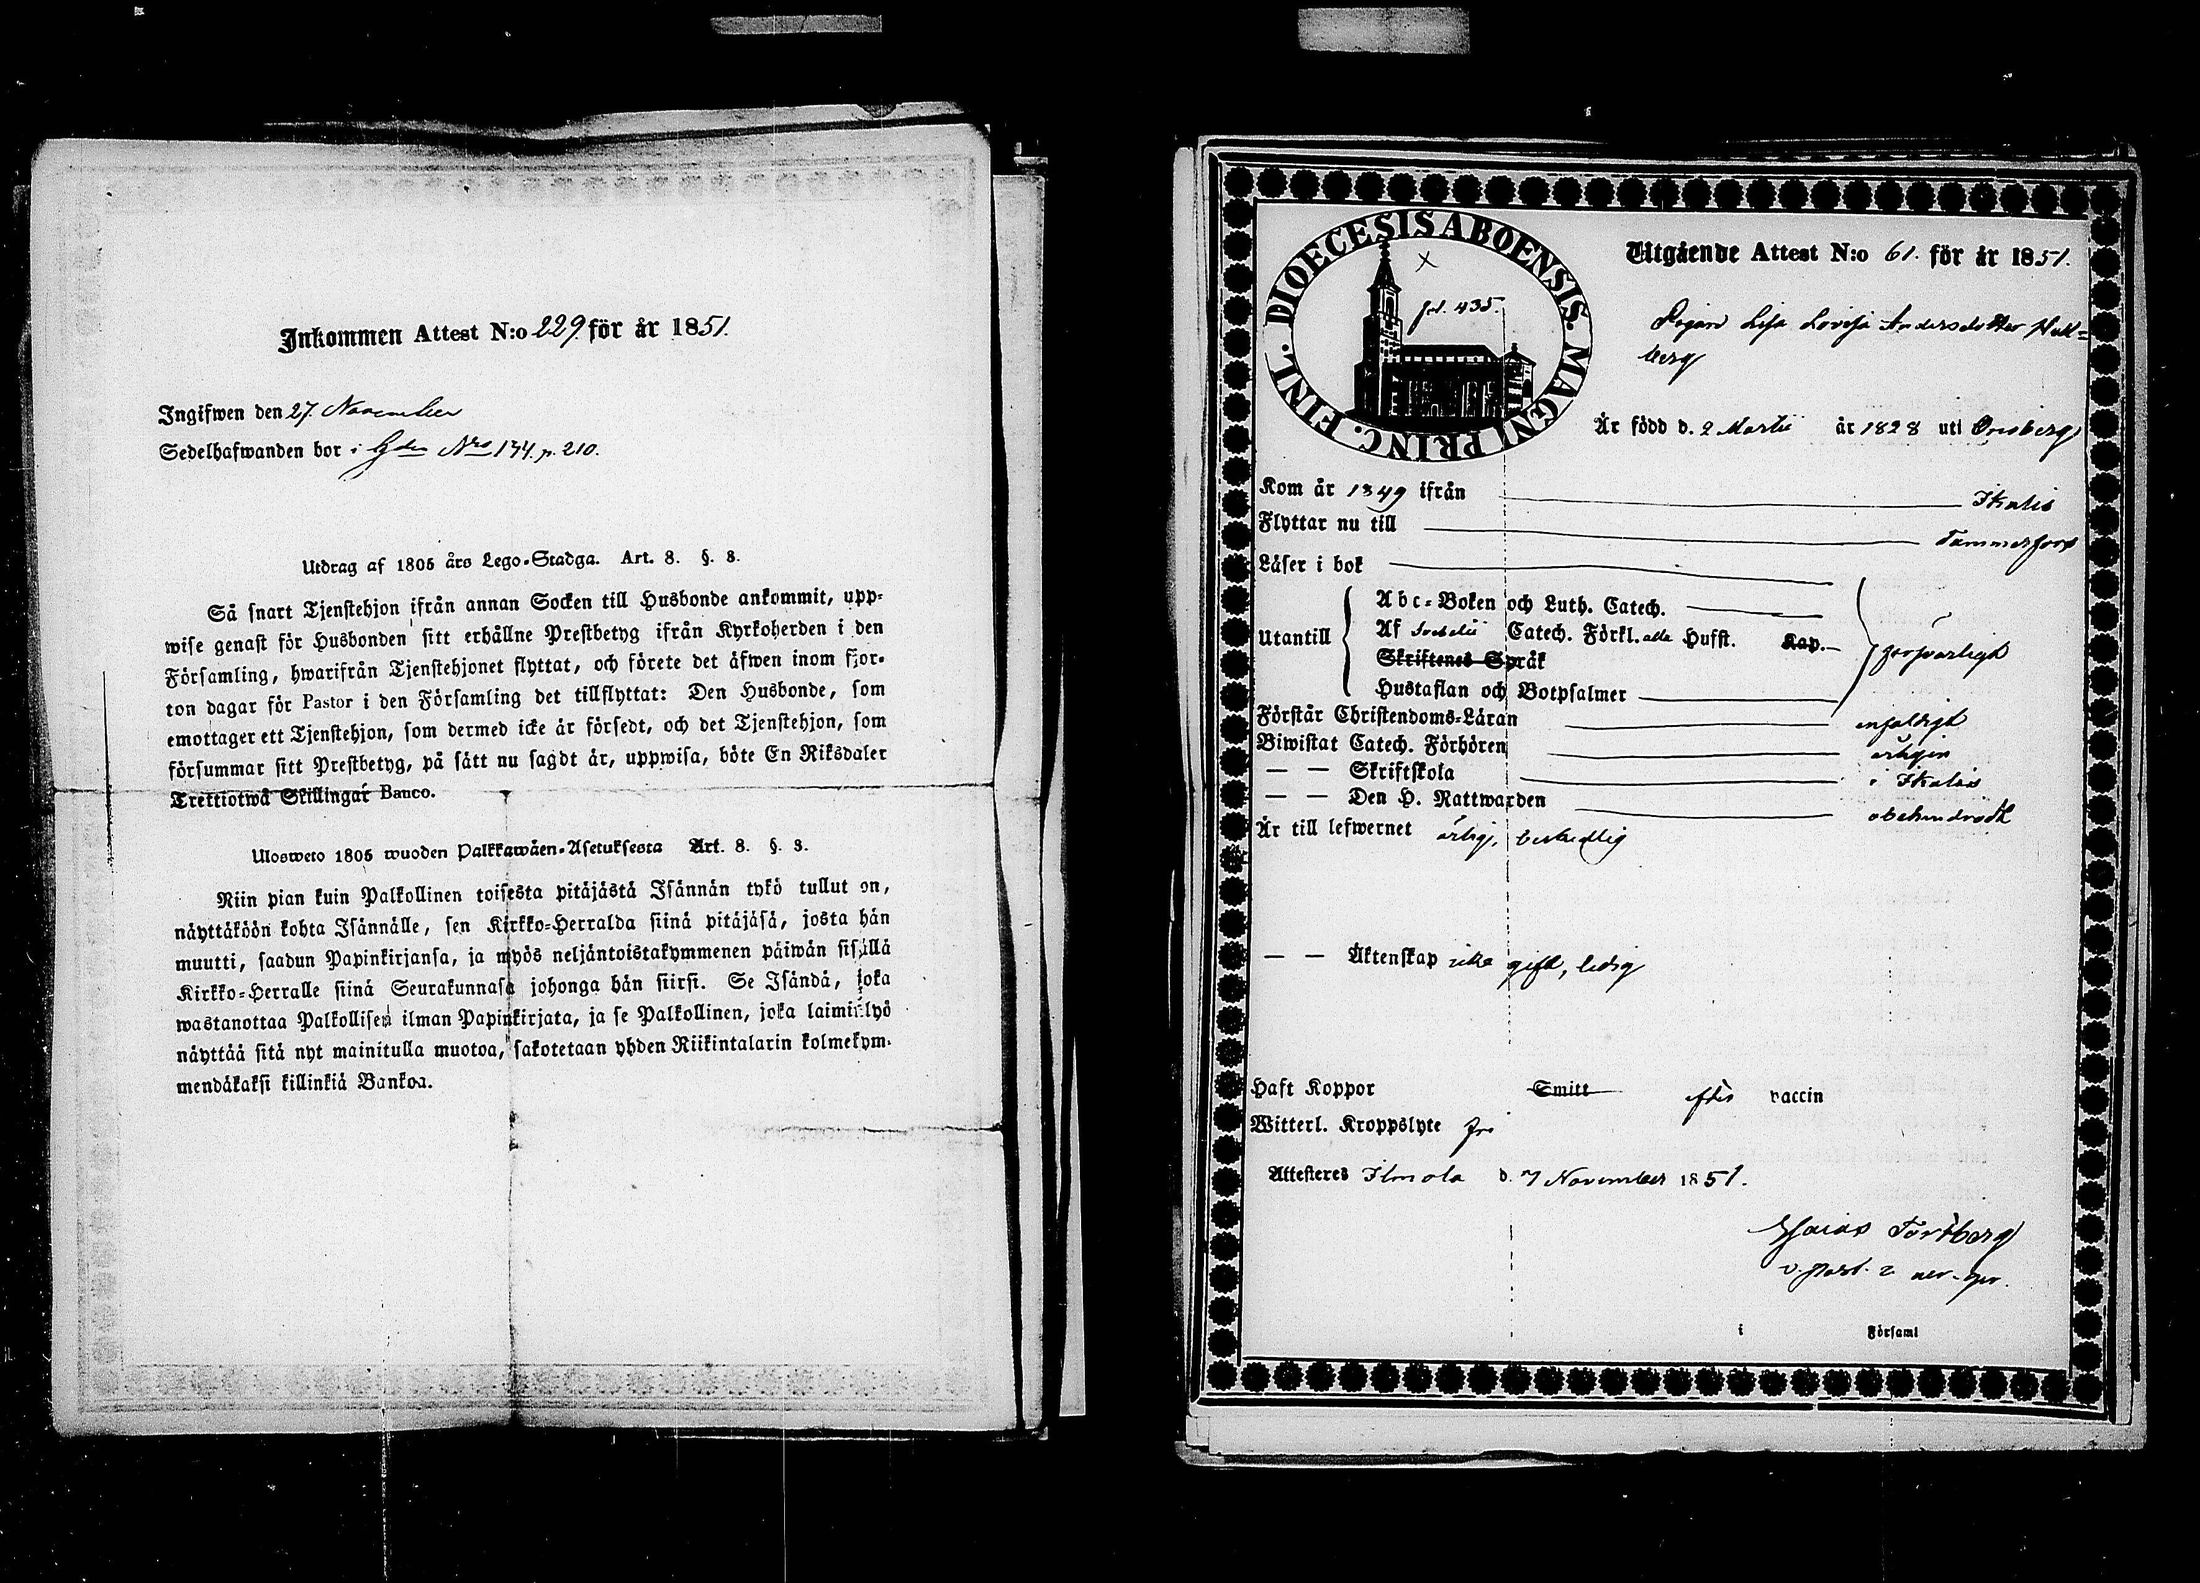 Inkommen Attest N:o 229 för år 1851.
Ingifwen den 27. November
Sedelhafwanden bor i Gden Nro 134. p. 210.
Utdrag af 1805 års Lego-Stadga. Art. 8. §. 8.
Så snart Tjenstehjon ifrån annan Socken till Husbonde ankommit, upp-
wise genast för Husbonden sitt erhållne Prestbetyg ifrån Kyrkoherden i den
Församling, hwarifrån Tjenstehjonet flyttat, och förete det äfwen inom fjor-
ton dagar för Pastor i den Församling det tillflyttat: Den Husbonde, som
emottager ett Tjenstehjon, som dermed icke är försedt, och det Tjenstehjon, som
försummar sitt Prestbetyg, på sätt nu sagdt är, uppwisa, böte En Riksdaler
Trettiotwå Skillingar Banco.
Ulosweto 1805 wuoden Palkkawäen-Asetuksesta Art. 8. §. 8.
Niin pian kuin Palkollinen toisesta pitäjästä Isännän tykö tullut on,
näyttäköön kohta Isännälle, sen Kirkko-Herralda siinä pitäjäsä, josta hän
muutti, saadun Papinkirjansa, ja myös neljäntoistakymmenen päiwän sisällä
Kirkko-Herralle siinä Seurakunnasa johonga hän siirsi. Se Isändä, joka
wastanottaa Palkollisen ilman Papinkirjata, ja se Palkollinen, joka laimin lyö
näyttää sitä nyt mainitulla muotoa, sakotetaan yhden Riikintalarin kolmekym-
mendäkaksi killinkiä Bankoa.
DIOECESIS ABOENSIS. MAGNI PRINC. FINL.
X
fol. 435.
Utgående Attest N:o 61. för år 1851.
Pigan Lisa Lovisa Andersdotter
berg
Är född d. 2 Martii år 1828 uti
Kom år 1849 ifrån Ikalis
Flyttar nu till Tammerfors
Läser i bok
Utantill
Abc-Boken och Luth. Catech.
Af Svebelii Catech. Förkl. alla Hufst. Kap.
Skriftenes Språk
försvarligt
Hustaflan och Botpsalmer
Förstår Christendoms-Läran enfaldigt
Biwistat Catech. Förhören årligen
— — Skriftskola i Ikalis
— — Den H. Nattwarden obehindradt
Är till lefwernet ärlig, beskedlig
— — Äktenskap icke gift, ledig
Haft Koppor Smitt efter vaccin
Witterl. Kroppslyte fri
Attesteras Ilmola d. 7 November 1851.
Esaias
v. past.
i Församl